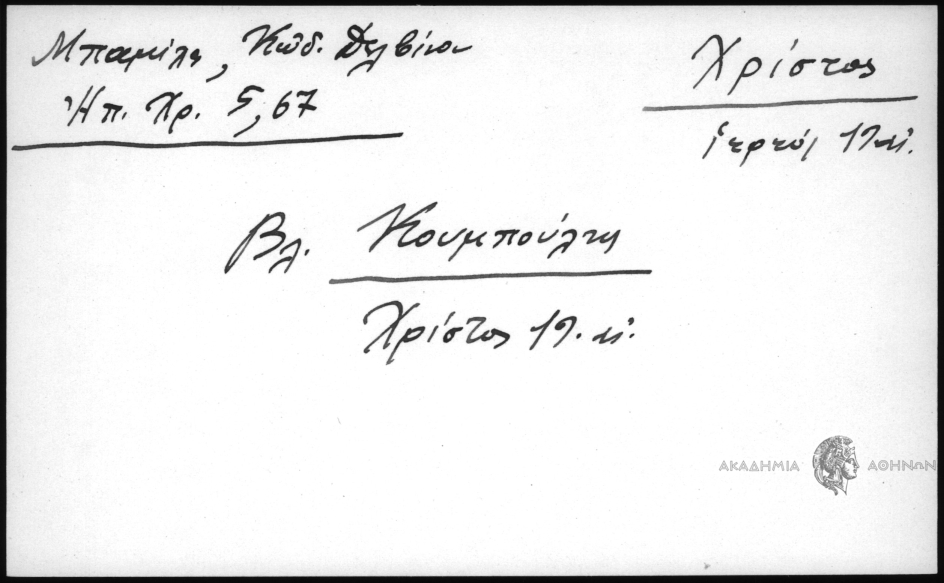 Μπαμίλη, Κώδ. Δελβίνου
Ἠπ. Χρ. 5, 67
Χρίστος
ἱερεύς 19 αἰ.
Βλ. Κουμπούλης
Χρίστος 19. αἰ.
ΑΚΑΔΗΜΙΑ ΑΘΗΝΩΝ